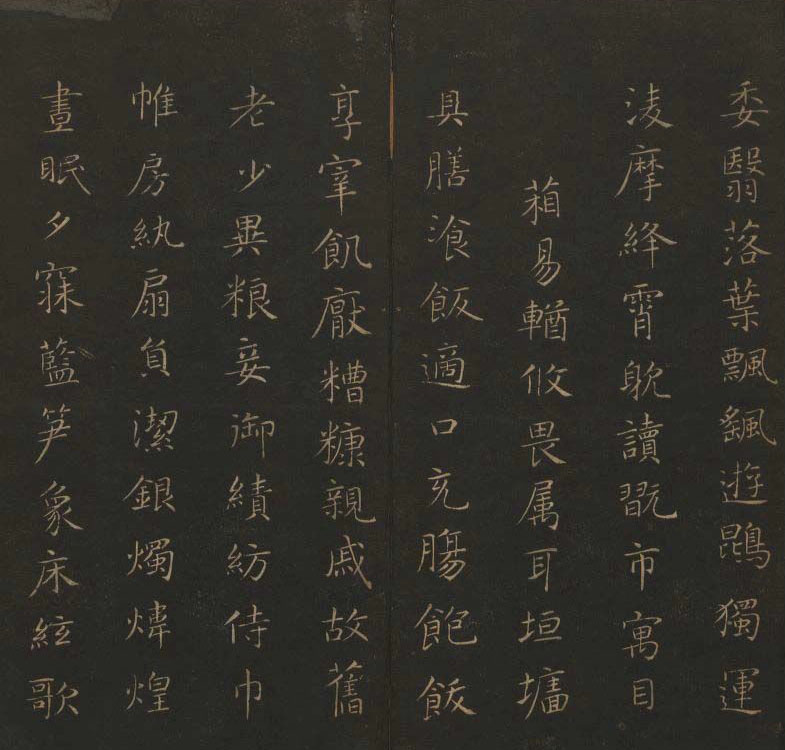 委翳落葉飄颻遊鵾獨運
淩摩絳霄耽讀翫市寓目
箱易輶攸畏属耳垣墻
具膳湌飯適口充膓飽飫
享宰飢厭糟糠親戚故舊
老少異粮妾御績紡侍巾
帷房紈扇負潔銀燭煒煌
晝眠夕寐藍笋象床絃歌